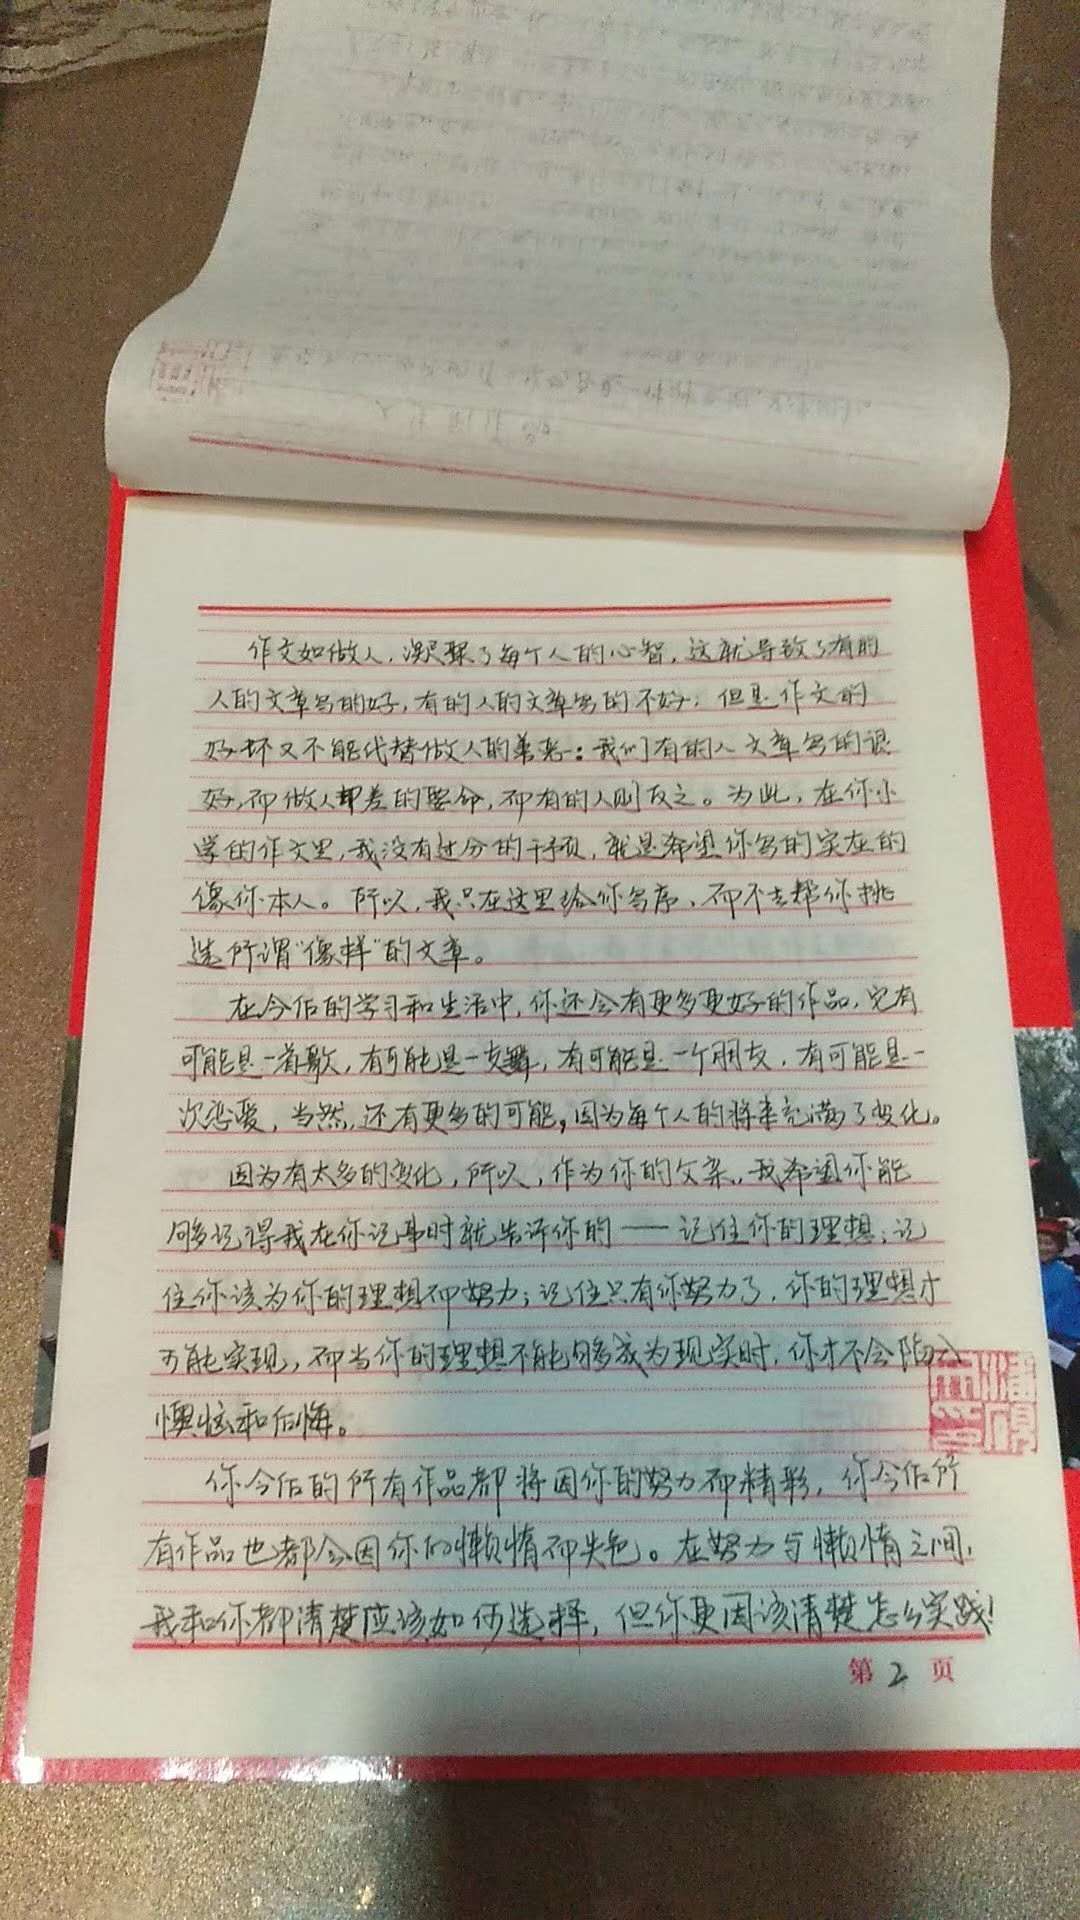 作文如做人,凝聚了每个人的心智,这就导致了有的
人的文章写的好,有的人的文章写的不好;但是作文的
好坏又不能代替做人的善恶:我们有的人文章写的很
好,而做人却差的要命,而有的人则反之。为此,在你小
学的作文里,我没有过分的干预,就是希望你写的实在的
像你本人。所以,我只在这里给你写序,而不去帮你挑
选所谓“像样”的文章。
在今后的学习和生活中,你还会有更多更好的作品,它有
可能是一首歌,有可能是一支舞,有可能是一个朋友,有可能是一
次恋爱,当然,还有更多的可能,因为每个人的将来充满了变化。
因为有太多的变化,所以,作为你的父亲,我希望你能
够记得我在你记事时就告诉你的——记住你的理想;记
住你该为你的理想而努力;记住只有你努力了,你的理想才
可能实现,而当你的理想不能够成为现实时,你才不会陷入
懊恼和后悔。
你今后的所有作品都将因你的努力而精彩,你今后所
有作品也都会因你的懒惰而失色。在努力与懒惰之间,
我和你都清楚应该如何选择,但你更因该清楚怎么实践!
第2页